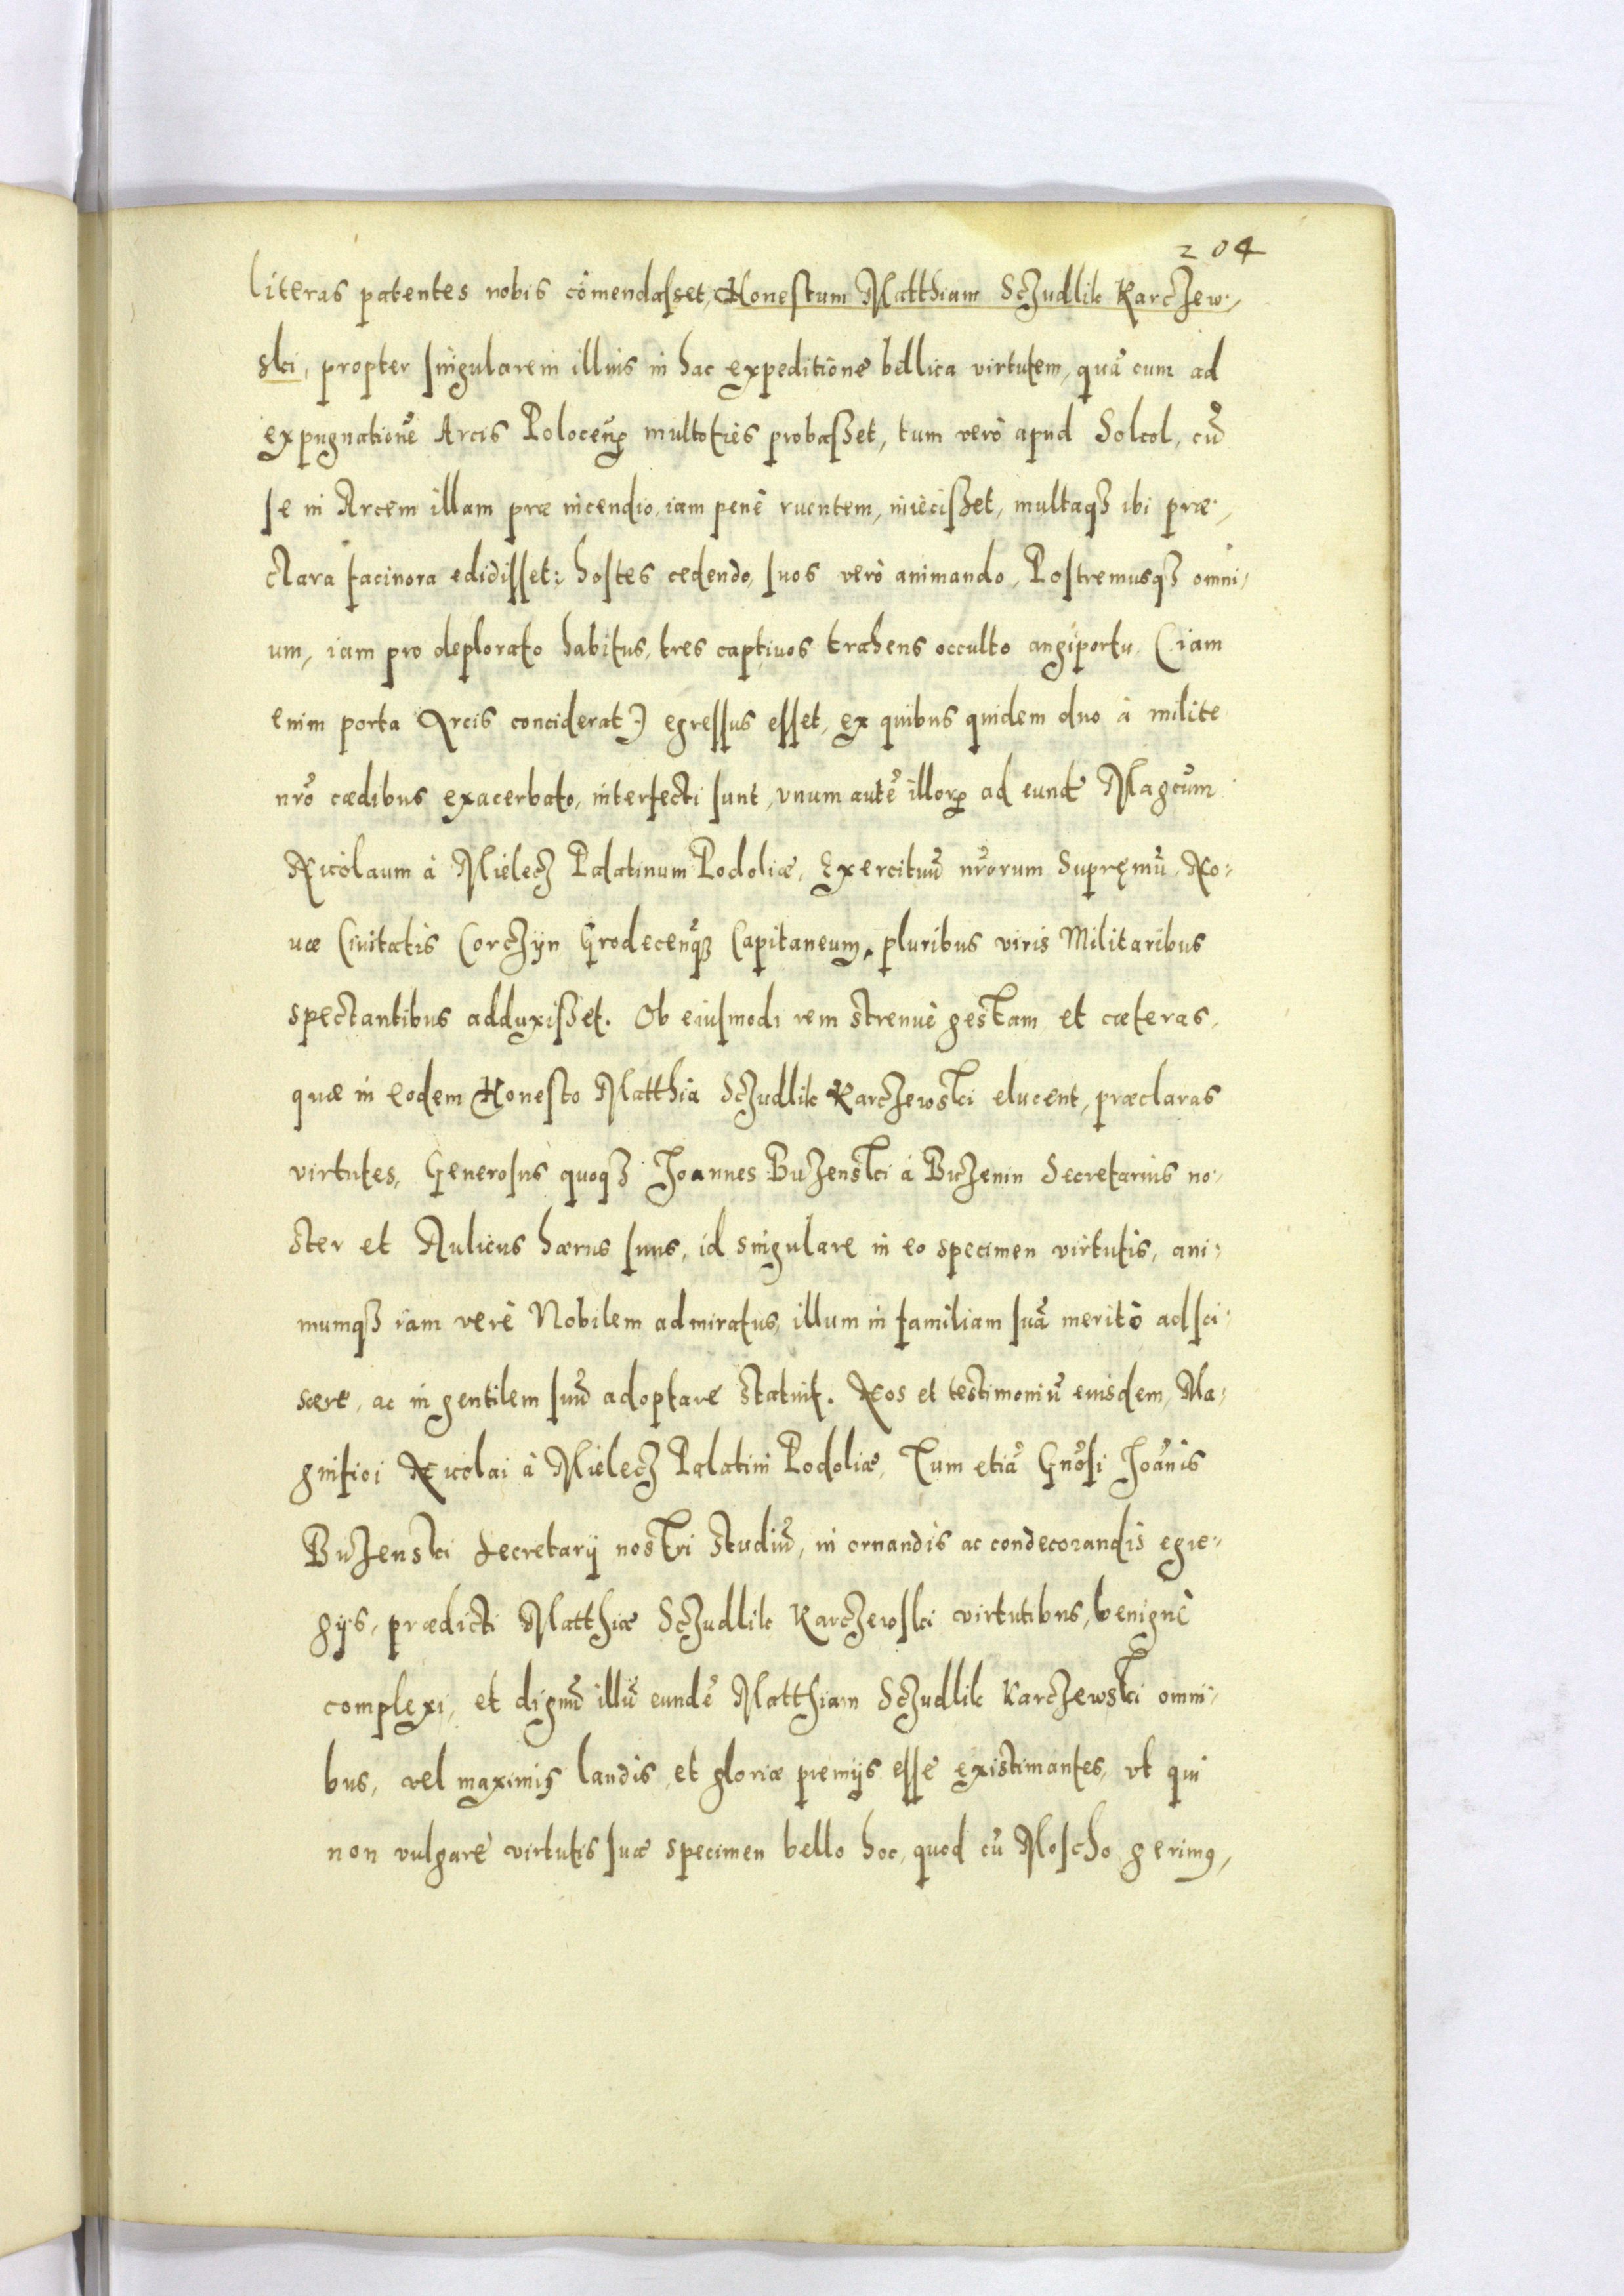 204
literas patentes nobis cõmendasset, Honestum Matthiam Sczudlik Karczew-
ski, propter singularem illius in hac expeditione bellica virtutem, quã cum ad
expugnationẽ Arcis Polocen̄ multoties probasset, tum verò apud Sokol, cũ
se in Arcem illam præ incendio, iam penè ruentem, iniecisset, multaqȝ ibi præ-
clara facinora edidisset: hostes cedendo, suos verò animando, Postremusqȝ omni-
um, iam pro deplorato habitus, tres captiuos trahens occulto angiportu (iam
enim porta Arcis conciderat) egressus esset, ex quibus quidem duo à milite
nrõ cædibus exacerbato, interfecti sunt, vnum autẽ illorꝝ ad eundẽ Magcũm
Nicolaum à Mielecz Palatinum Podoliæ, Exercituũ nrõrum Supremũ, No-
uæ Ciuitatis Corczyn Grodecen̄qȝ Capitaneum, pluribus viris Militaribus
spectantibus adduxisset. Ob eiusmodi rem strenuè gestam et cæteras,
quæ in eodem Honesto Matthia Sczudlik Karczewski elucent, præclaras
virtutes, Generosus quoqȝ Joannes Buzenski à Buzenin Secretarius no-
ster et Aulicus hærus suus, id singulare in eo specimen virtutis, ani-
mumqȝ iam verè Nobilem admiratus, illum in familiam suã meritò adsci-
scere, ac in gentilem suũ adoptare statuit. Nos et testimoniũ eiusdem, Ma-
gnifici Nicolai à Mielecz Palatini Podoliæ, Tum etiã Gnõsi Joãnis
Buzenski Secretarij nostri studiũ, in ornandis ac condecorandis egre-
gijs, prædicti Matthiæ Sczudlik Karczewski virtutibus, benignè
complexi, et dignũ illũ eundẽ Matthiam Sczudlik Karczewski omni-
bus, vel maximis laudis et gloriæ premijs esse existimantes, vt qui
non vulgare virtutis suæ specimen bello hoc, quod cũ Moscho gerimꝰ,